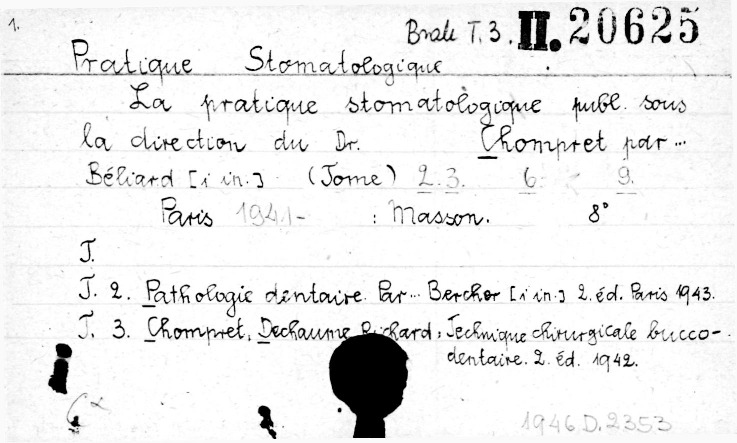 1.
Brak T. 3. II. 20625
Pratique Stomatologique
La pratique stomatologique publ. sous
la direction du Dr. Chompret par...
Béliard [i in.] (Tome) 2. 3. 6. 9.
Paris 1941- : Masson. 8°
T.
T. 2. Pathologie dentaire. Par... Bercher [i in.] 2. éd. Paris 1943.
T. 3. Chompret, Dechaume, Richard: Technique chirurgicale bucco-
dentaire. 2. éd. 1942.
1946 D. 2353